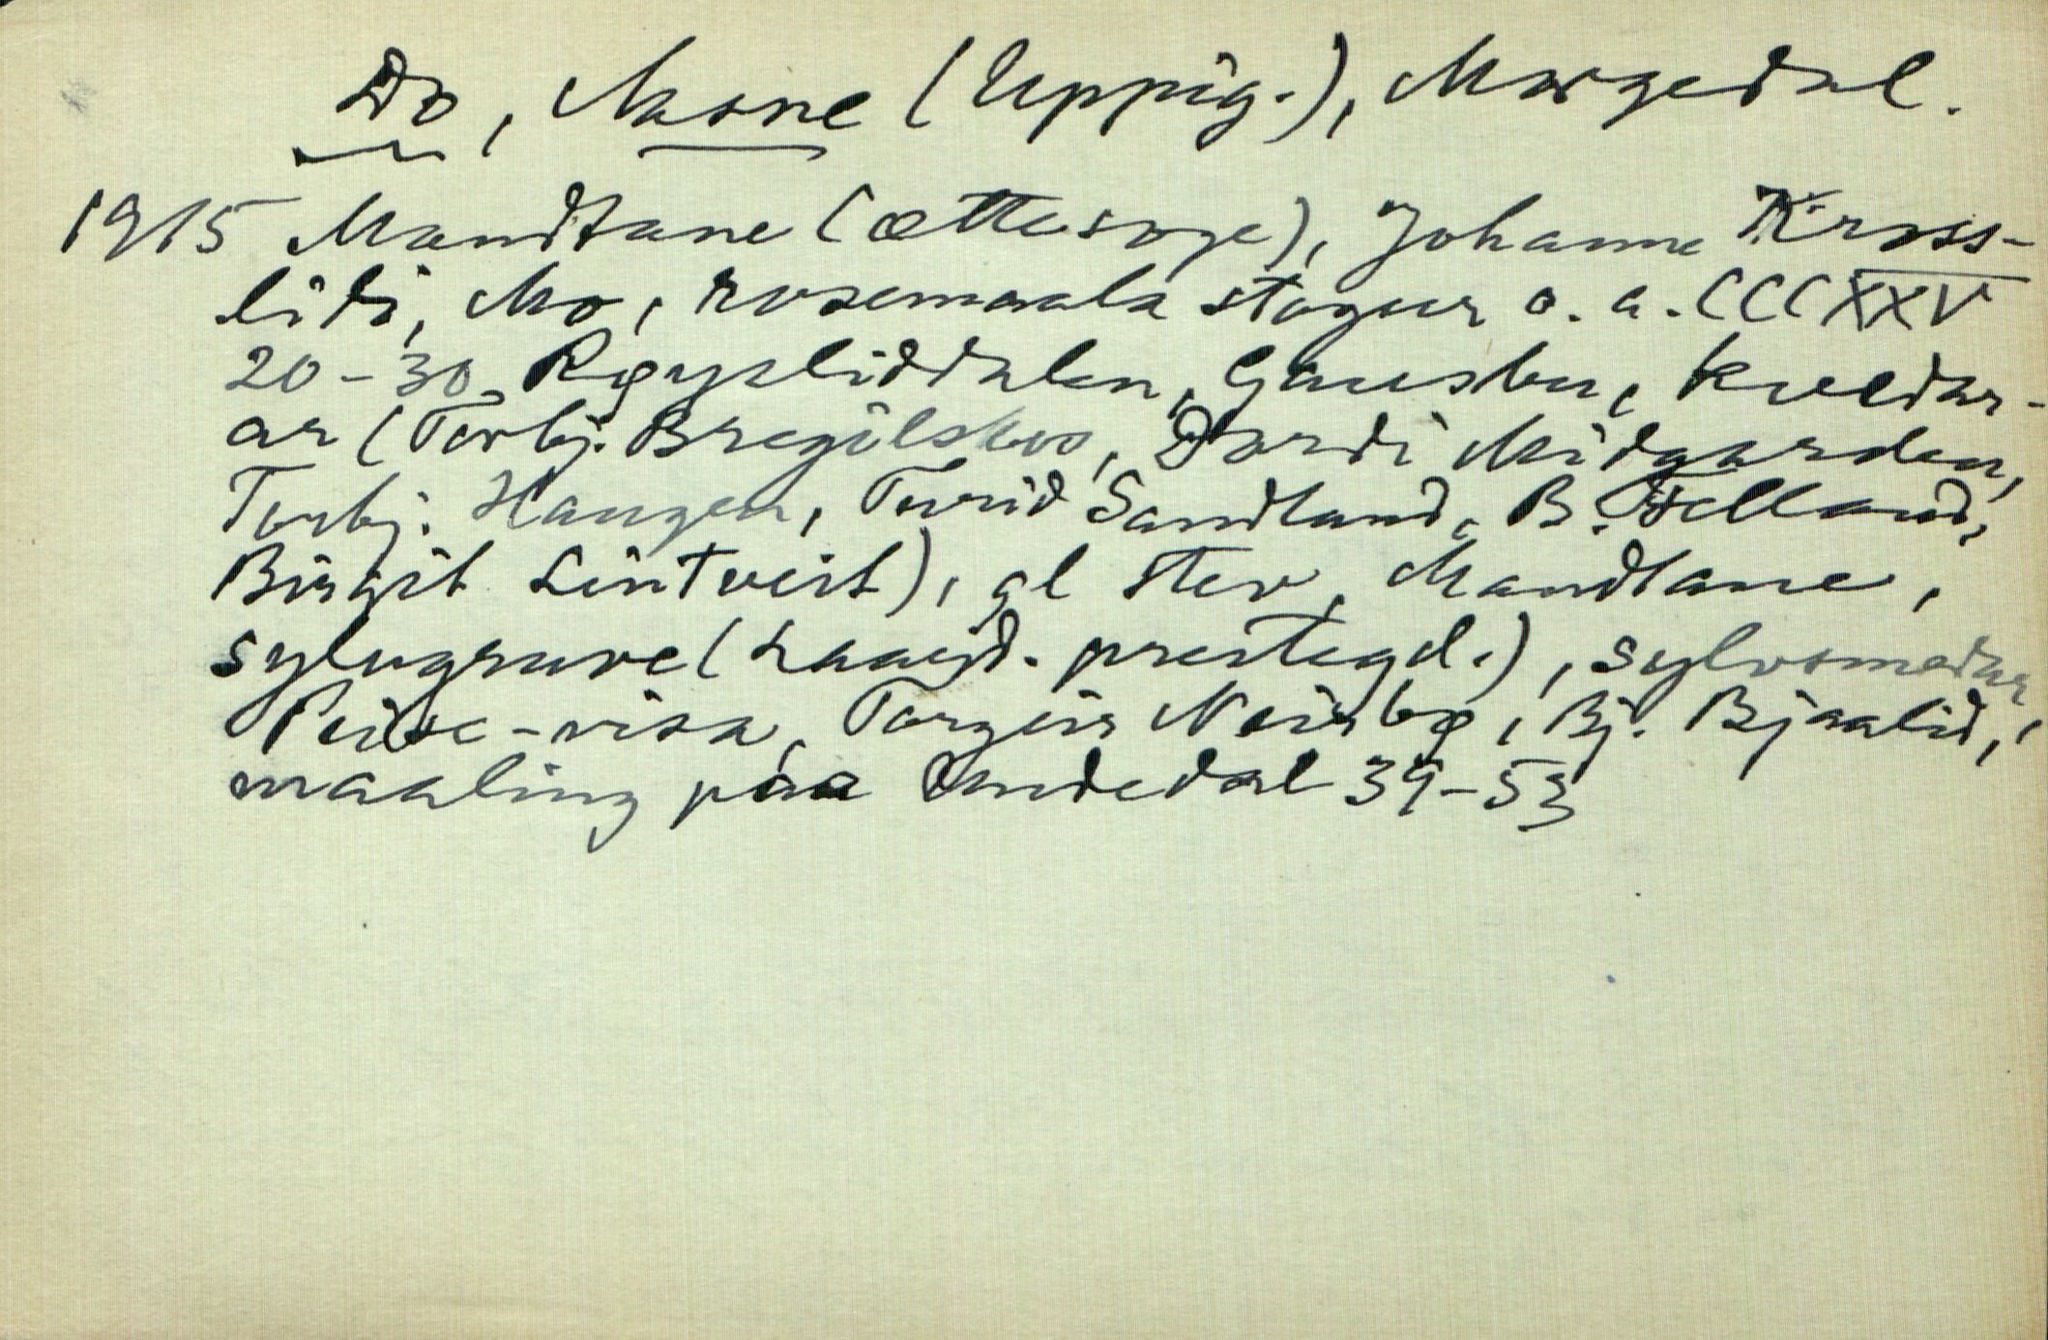 Do, Aasne (Uppig.), Morgedal.
1915 Mandtane (ættesoge), Johanne Kross-
lidi, Mo, rosemaala stogur o. a. CCCXXV
20-30, Røysliddalen, Gausbu, kvedar-
ar (Torbj. Bregilsbu, Dordi Midgarden,
Torbj. Haugen, Turid Sandland, B. Felland,
Birgit Lintveit), gl stev, Mandtane,
sylvgruve (Laard. prestegd.), sylvsmedar,
Peise-visa, Torgeir Neirbø, Bj. Bjaalid,
maaling paa Ondedal 39-53